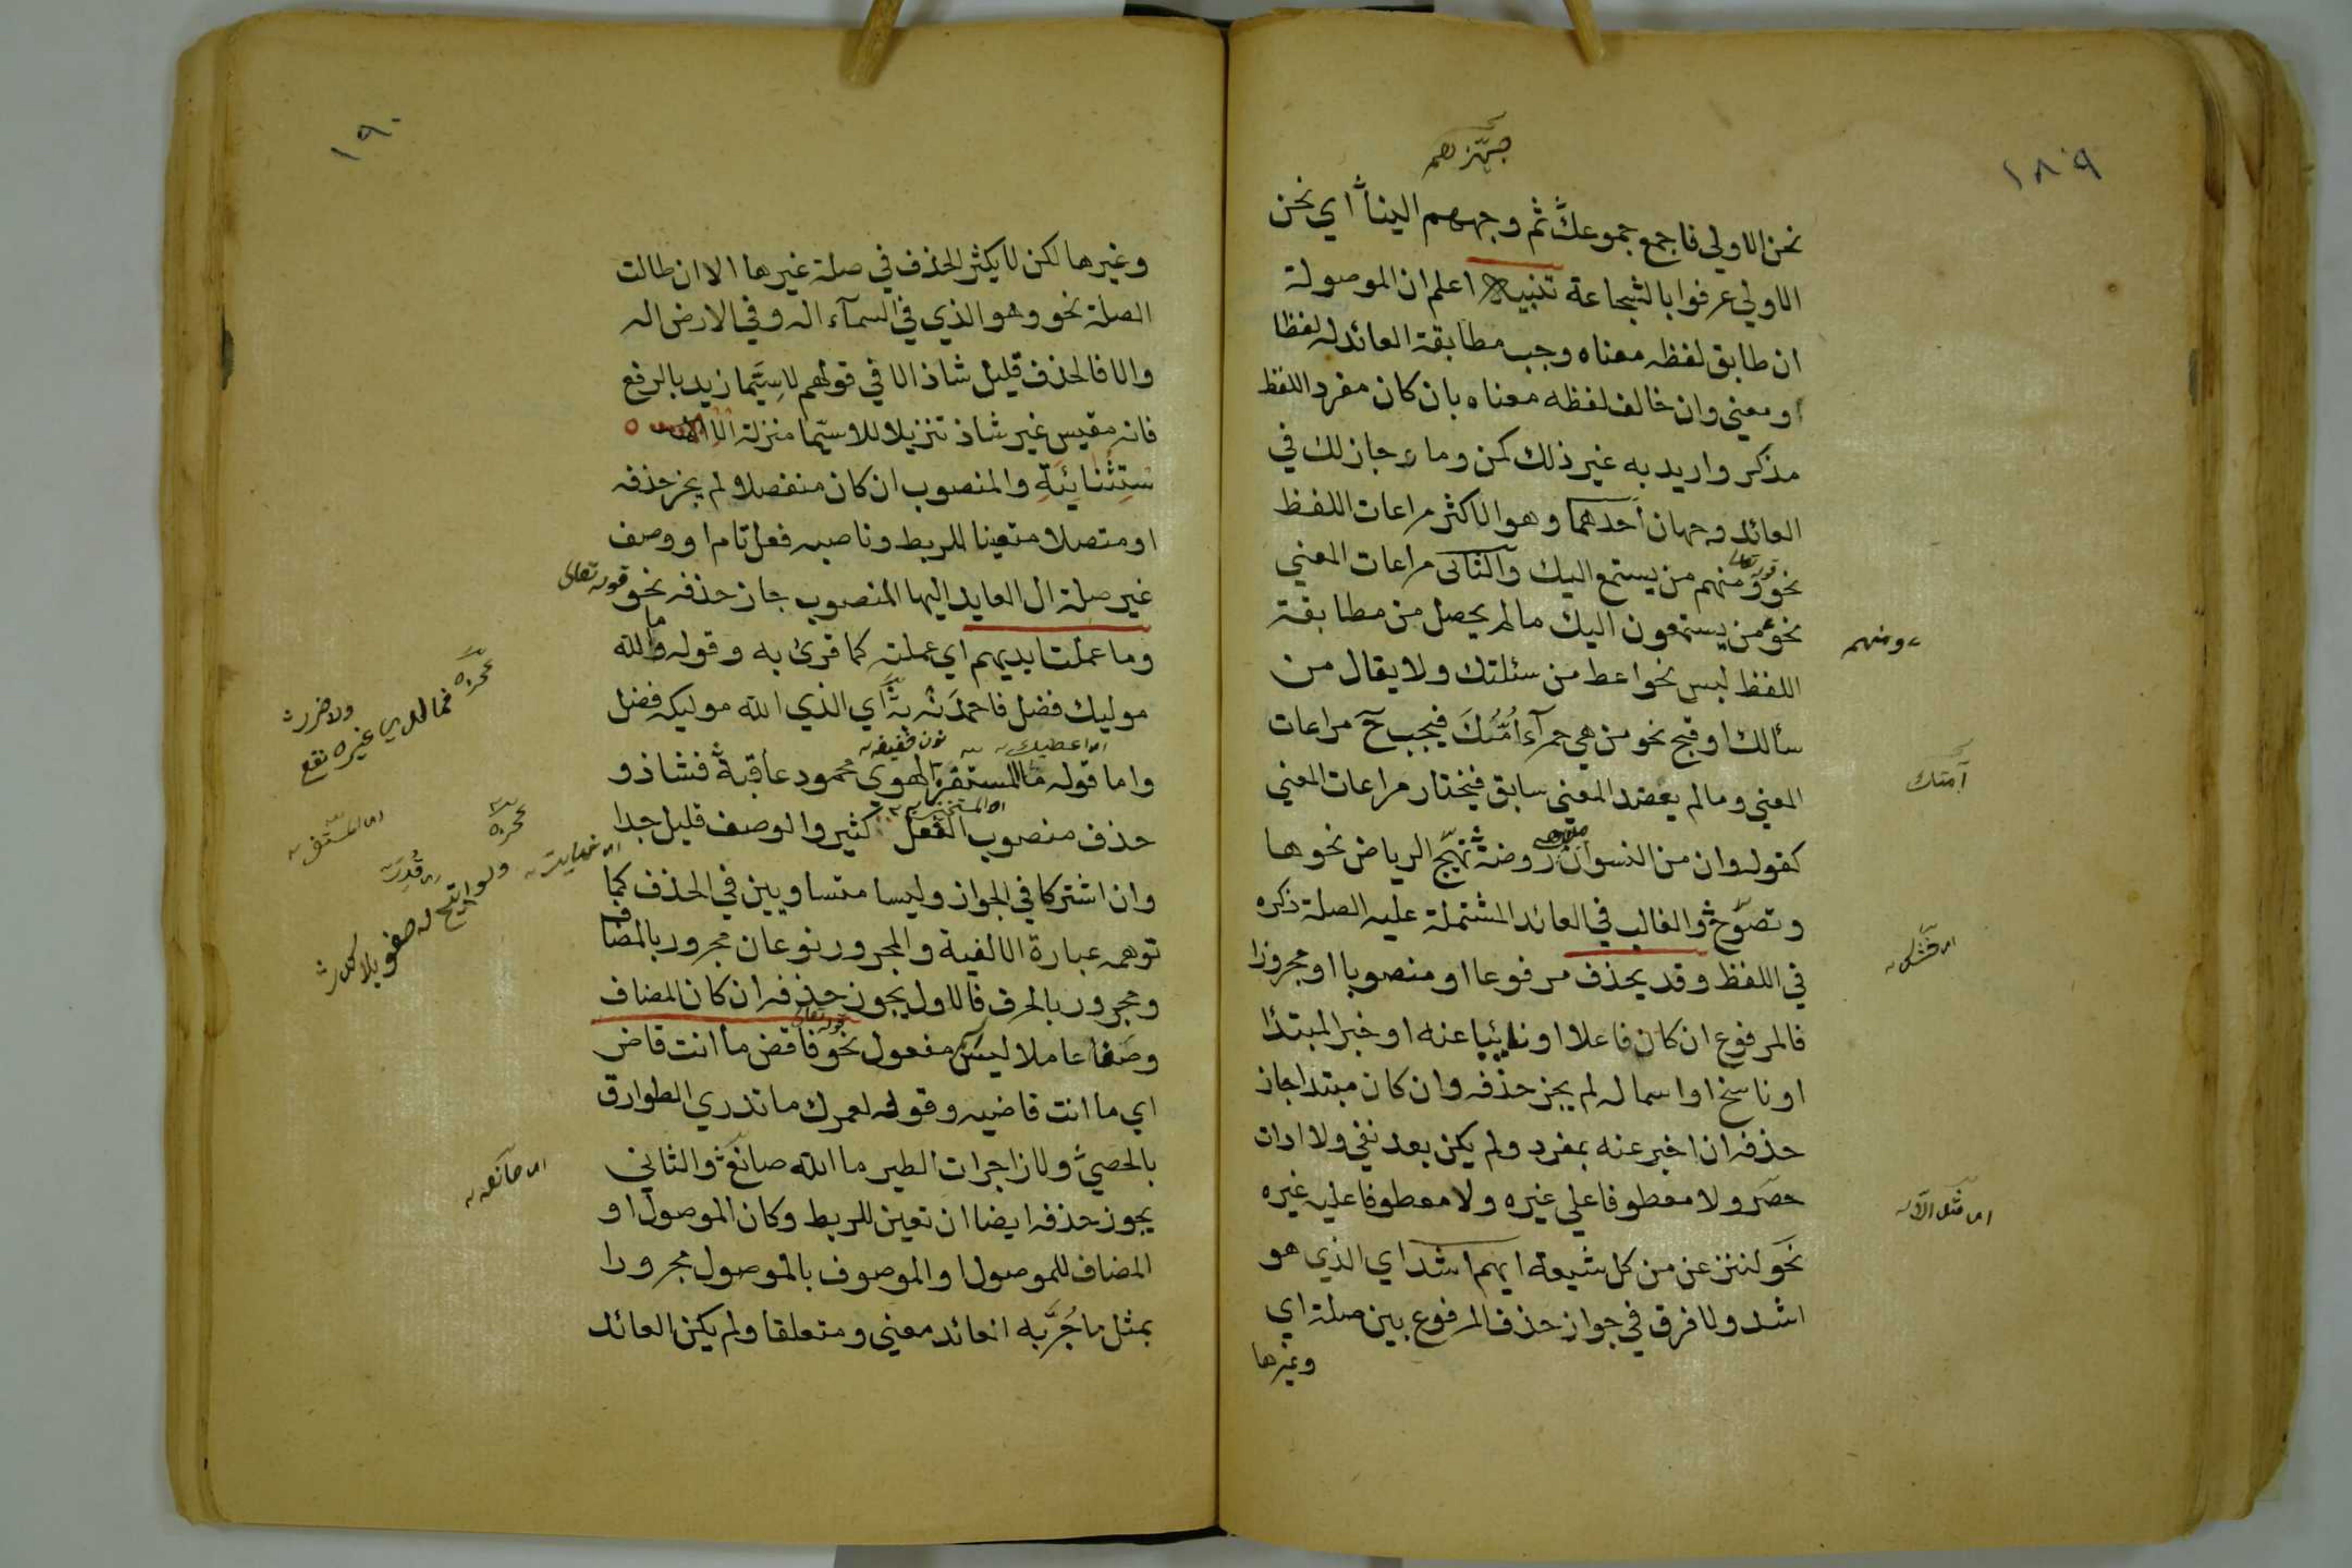 ١٨٩
جهزهم
نحن الاولي فاجمع جموعك ثم وجههم الينا اي نحن
الاولي عرفوا بالشجاعة تنبيه اعلم ان الموصولة
ان طابق لفظه معناه وجب مطابقة العائد له لفظا
او معني وان خالف لفظه معناه بان كان مفرد اللفظ
مذكر واريد به غير ذلك كمن وما جاز لك في
العائد وجهان احدهما وهو الاكثر مراعات اللفظ
قوله تعالى
نحو ومنهم من يستمع اليك والثانى مراعات المعني
نحو من يستمعون اليك مالم يحصل من مطابقة
ومنهم
اللفظ لبس نحو اعط من سئلتك ولا يقال من
سألك او قبح نحو من هي حمرآء اُمّتُكَ فيجب ح مراعات
آمتك
المعني ومالم يعضد المعني سابق فيختار مراعات المعني
كقوله وان من النسوان من هي روضة تهيّج الرياض نحوها
وتصوّح والغالب في العائد المشتملة عليه الصلة ذكره
في اللفظ وقد يحذف مرفوعا او منصوبا او مجرورا
فالمرفوع ان كان فاعلا او نائيا عنه او خبر المبتدا
او ناسخ او اسما له لم يجز حذفه وان كان مبتدا جاز
حذفه ان اخبر عنه بمفرد ولم يكن بعد نفي ولا ادات
حصر ولا معطوفا علي غيره ولا معطوفا عليه غيره
نحو لننزعن من كل شيعة ايهم اشد اي الذي هو
اشد ولا فرق في جواز حذف المرفوع بين صلة اي
وغيرها
١٩٠
وغيرها لكن لا يكثر الحذف في صلة غيرها الا ان طالت
الصلة نحو وهو الذي في السمآء اله وفي الارض اله
والا فالحذف قليل شاذ الا في قولهم لاسِيّما زيد بالرفع
فانه مقيس غير شاذ تنزيلا للاسيّما منزلة الا
ستثنائية والمنصوب ان كان منفصلا لم يجز حذفه
او متصلا متعينا للربط وناصبه فعل تام او وصف
غير صلة ال العايد اليها المنصوب جاز حذفه نحو قوله تعالى
وما عملت ايديهم اي عملته كما قرئ به وقوله ما الله
موليك فضل فاحمدنه به اي الذي الله موليكه فضل
عجزه فما لدي غيره نفع ولا ضرر
واما قوله ما المستفز الهوى محمود عاقبة فشاذ و
حذف منصوب الفعل كثير والوصف قليل جدا
عجزه ولو اتيح له صفو بلا كدر
وان اشتركا في الجواز وليسا متساويين في الحذف كما
توهمه عبارة الالفية والمجرور نوعان مجرور بالمضا
ومجرور بالحرف فالاول يجوز حذفه ان كان المضاف
قوله تعالى
وصفا عاملا ليس مفعول نحو فاقض ما انت قاض
اي ما انت قاضيه وقوله لعمرك ما تدري الطوارق
بالحصي ولا زاجرات الطير ما الله صانع والثاني
اى صانعه
يجوز حذفه ايضا ان تعين للربط وكان الموصول او
المضاف للموصول او الموصوف بالموصول مجرورا
بمثل ما جُرَّ به العائد معني ومتعلقا ولم يكن العائد